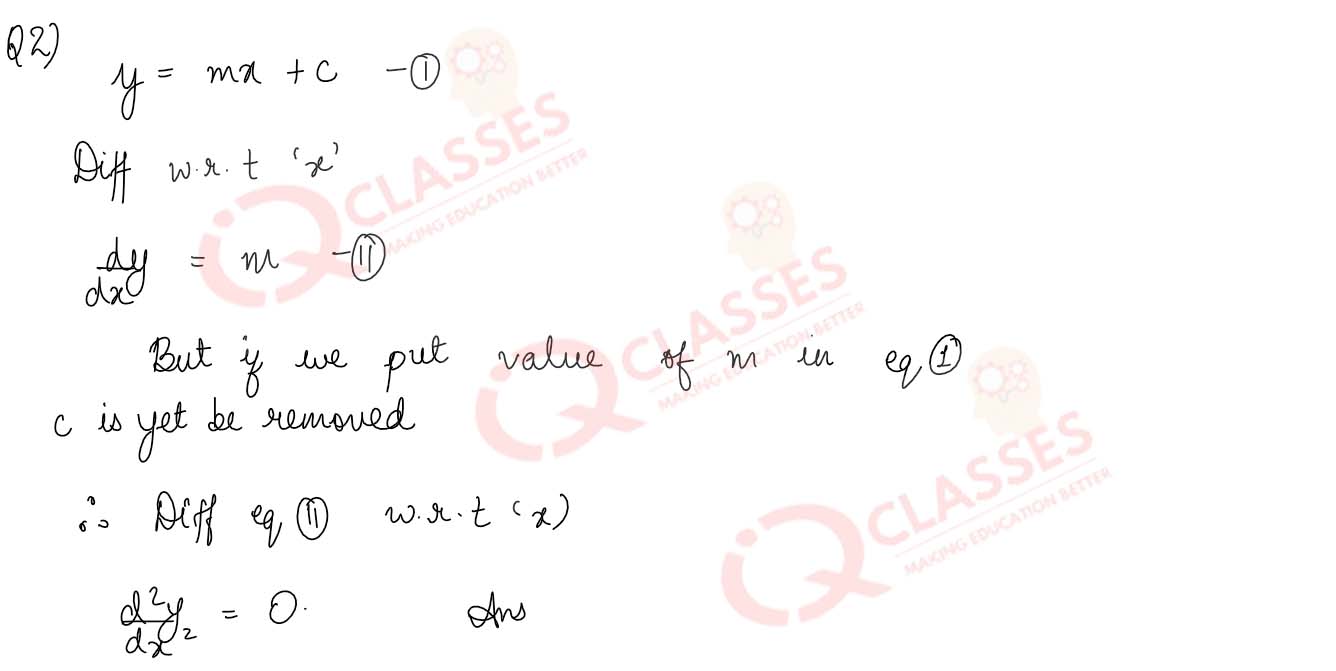 Q2)
y = mx + c -①
Diff w.r.t 'x'
dy/dx = m -⑪
But if we put value of m in eq ①
c is yet be removed
∴ Diff eq ⑪ w.r.t (x)
d²y/dx² = 0. Ans
IQ CLASSES
MAKING EDUCATION BETTER
IQ CLASSES
MAKING EDUCATION BETTER
IQ CLASSES
MAKING EDUCATION BETTER